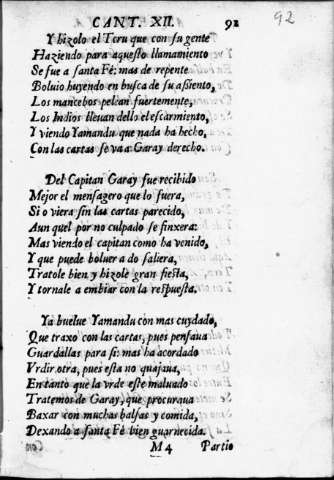 CANT. XII. 92
92
Y hizolo el Teru que con su gente
Haziendo para aquesto llamamiento
Se fue a santa Fè: mas de repente
Boluio huyendo en busca de su assiento,
Los mancebos pelean fuertemente,
Los Indios lleuan dello el escarmiento,
Y viendo Yamandu que nada ha hecho,
Con las cartas se va a Garay derecho.
Del Capitan Garay fue recibido
Mejor el mensagero que lo fuera,
Si o viera sin las cartas parecido,
Aun quel por no culpado se finxera:
Mas viendo el capitan como ha venido,
Y que puede boluer a do saliera,
Tratole bien y hizole gran fiesta,
Y tornale a embiar con la respuesta.
Ya buelue Yamandu con mas cuydado,
Que traxo con las cartas, pues pensaua
Guardallas para si: mas ha acordado
Vrdir otra, pues esta no quajaua,
En tanto que la vrde este maluado
Tratemos de Garay, que procuraua
Baxar con muchas balsas y comida,
Dexando a santa Fè bien guarnecida.
M 4 Partio